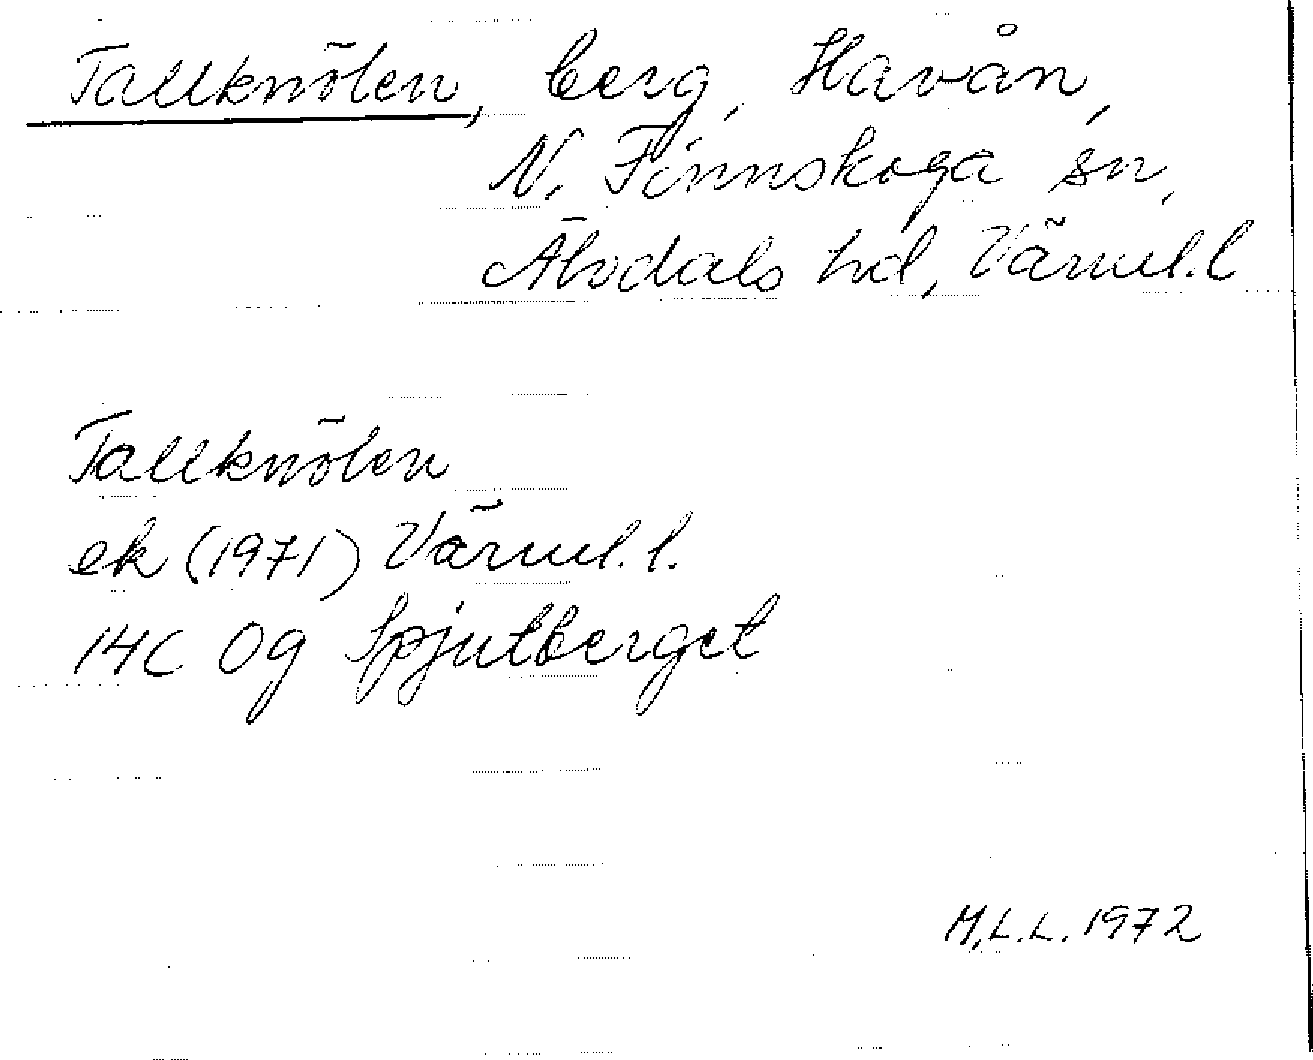 Tallknölen, berg, Havån,
N. Finnskoga sn,
Älvdals hd, Värml. l
Tallknölen
ek (1971) Värml. l.
14C 0g Spjutberget
M.L.L. 1972